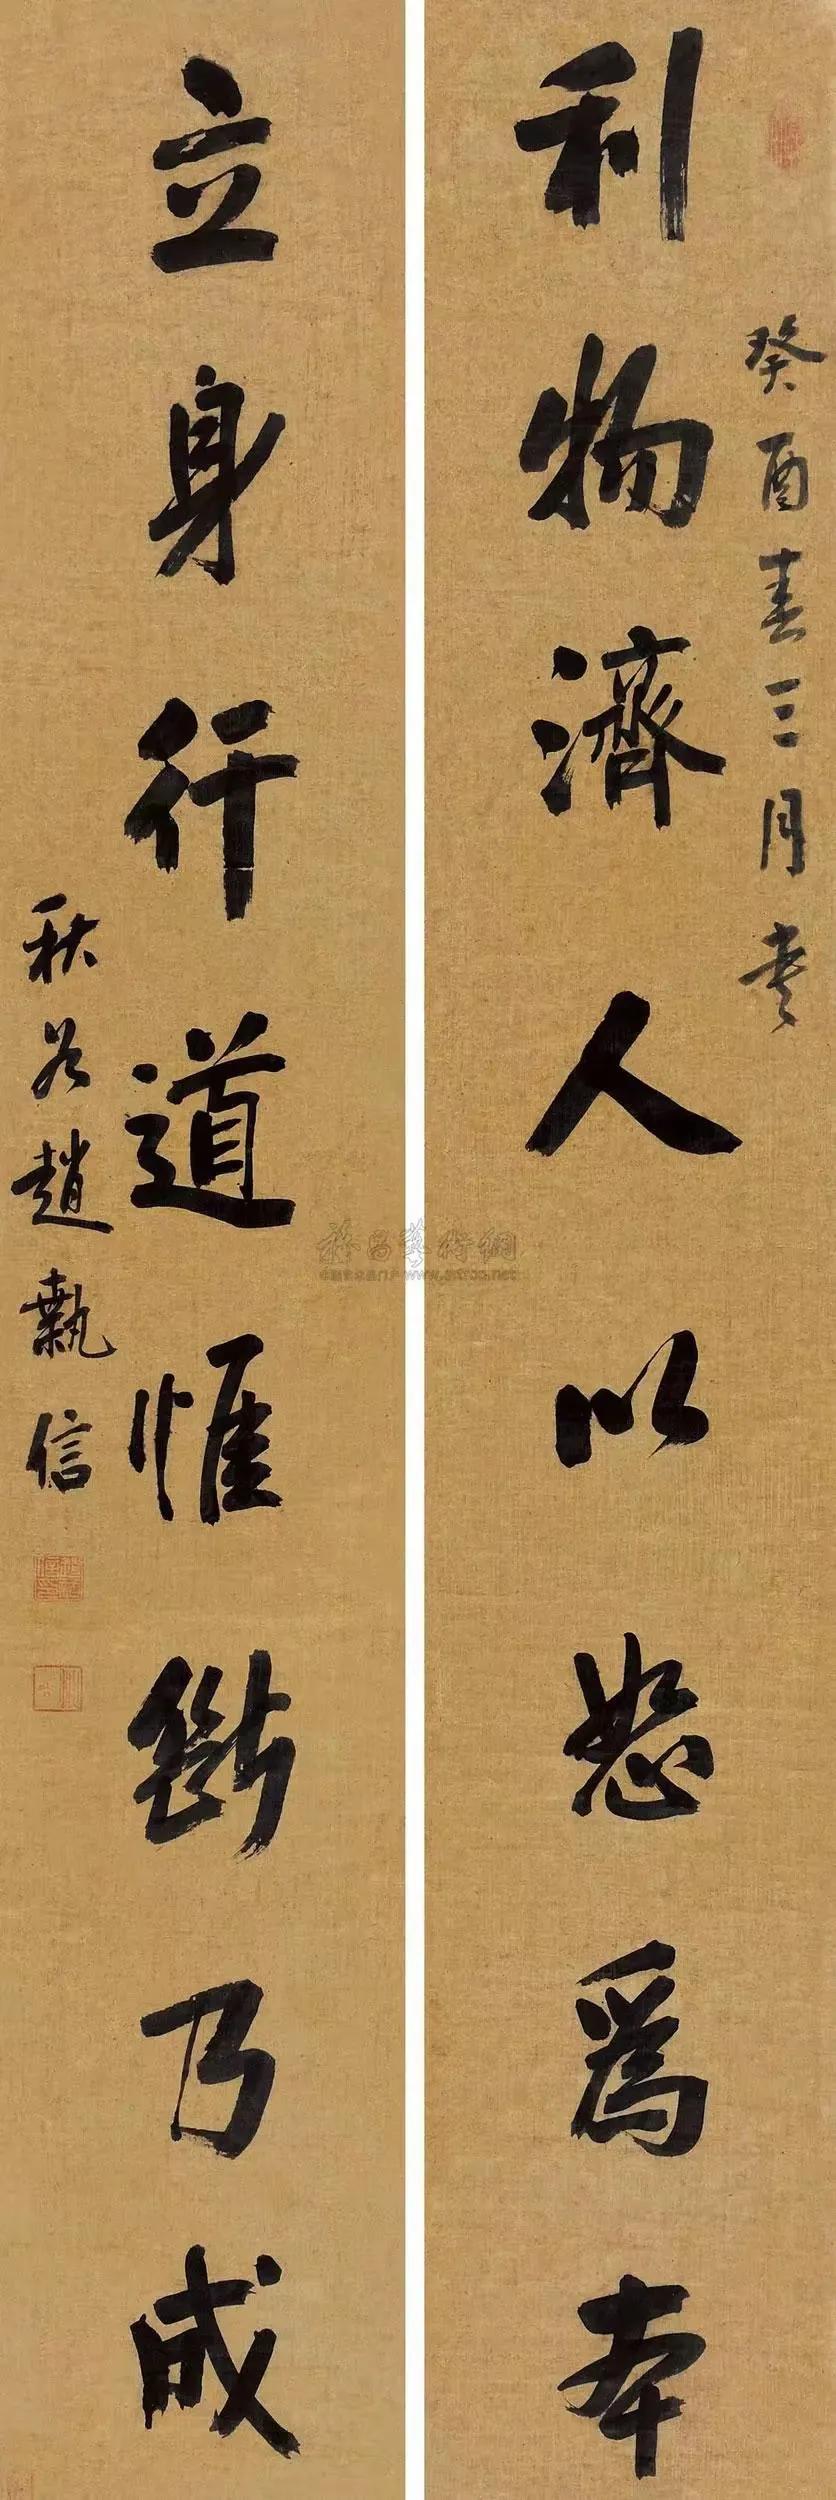 癸酉春三月书
利物濟人以恕爲本
立身行道惟斷乃成
秋谷趙執信